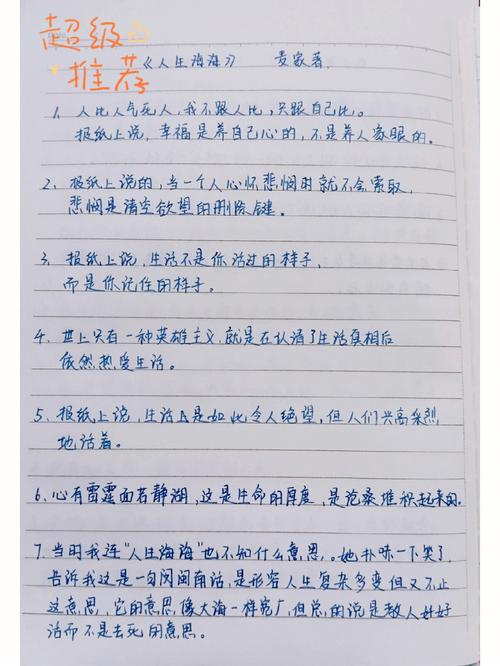 超级
推荐
《人生海海》 麦家著.
1. 人比人气死人,我不跟人比,只跟自己比。
报纸上说,幸福是养自己心的,不是养人家眼的。
2. 报纸上说的,当一个人心怀悲悯时就不会索取,
悲悯是清空欲望的删除键。
3. 报纸上说,生活不是你活过的样子,
而是你记住的样子。
4. 世上只有一种英雄主义,就是在认清了生活真相后
依然热爱生活。
5. 报纸上说,生活是如此令人绝望,但人们兴高采烈
地活着。
6. 心有雷霆面若静湖,这是生命的厚度,是沧桑堆积起来的。
7. 当时我连“人生海海”也不知什么意思。她扑哧一下笑了,
告诉我这是一句闽南话,是形容人生复杂多变但又不止
这意思,它的意思像大海一样宽广,但总的说是教人好好
活而不是去死的意思。